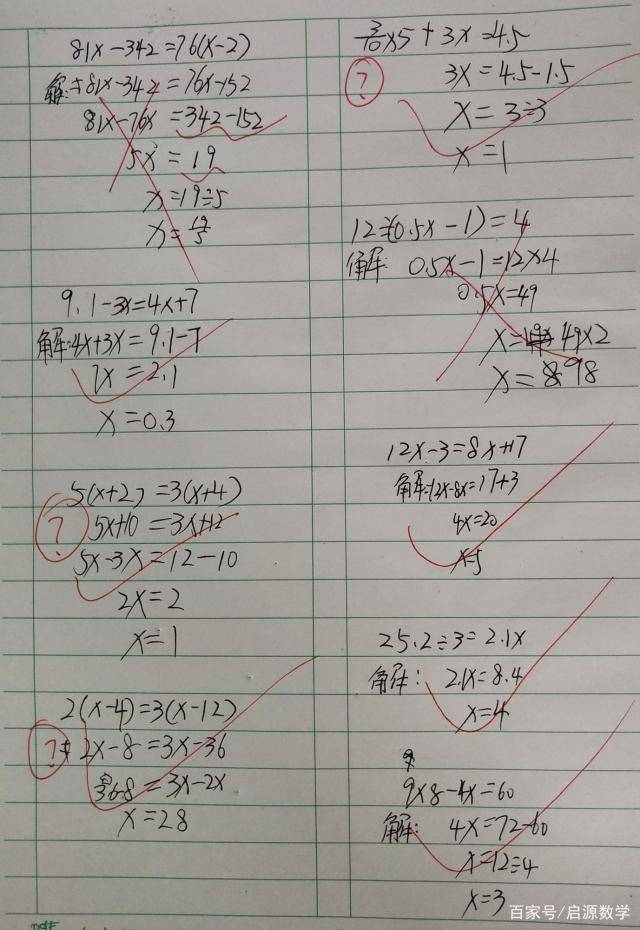 81x-342=76(x-2)
解:81x-342=76x-152
81x-76x=342-152
5x=19
x=19÷5
x=19/5
9.1-3x=4x+7
解:4x+3x=9.1-7
7x=2.1
x=0.3
5(x+2)=3(x+4)
? 5x+10=3x+12
5x-3x=12-10
2x=2
x=1
2(x-4)=3(x-12)
? 2x-8=3x-36
36-8=3x-2x
x=28
x5+3x=4.5
? 3x=4.5-1.5
x=3÷3
x=1
12÷(0.5x-1)=4
解: 0.5x-1=12x4
0.5x=49
x=49x2
x=98
12x-3=8x+17
解:12x-8x=17+3
4x=20
x=5
25.2÷3=2.1x
解: 2.1x=8.4
x=4
9x8-4x=60
解: 4x=72-60
x=12÷4
x=3
百家号/启源数学